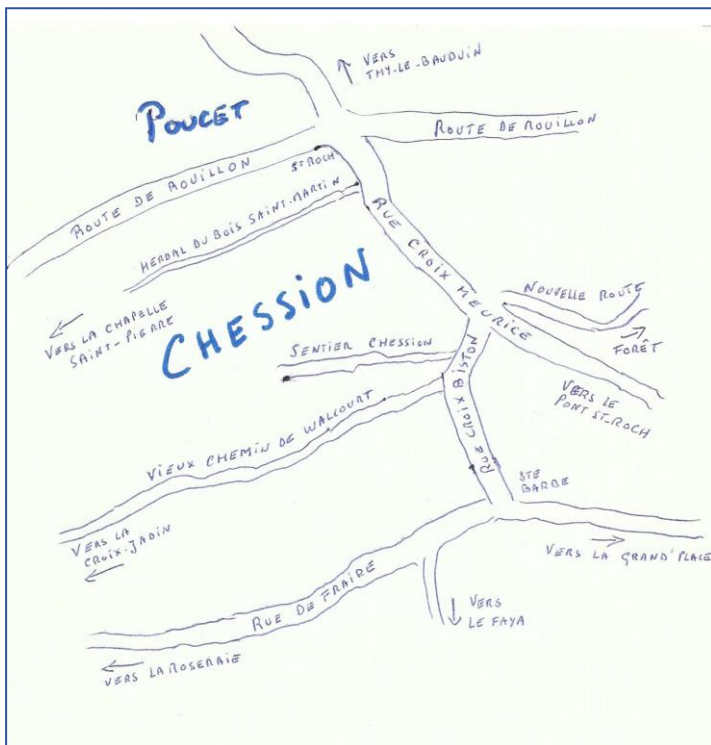 VERS
THY-LE-BAUDUIN
POUCET
ROUTE DE ROUILLON
ROUTE DE ROUILLON
ST ROCH
HERDAL DU BOIS SAINT-MARTIN
RUE CROIX MEURICE
CHESSION
NOUVELLE ROUTE
VERS LA CHAPELLE
SAINT-PIERRE
FORÊT
SENTIER CHESSION
VERS LE
PONT ST-ROCH
RUE CROIX BISTON
VIEUX CHEMIN DE WALCOURT
STE
BARBE
VERS LA
CROIX-JADIN
VERS LA GRAND'PLACE
RUE DE FRAIRE
VERS
LE FAYA
VERS LA ROSERAIE